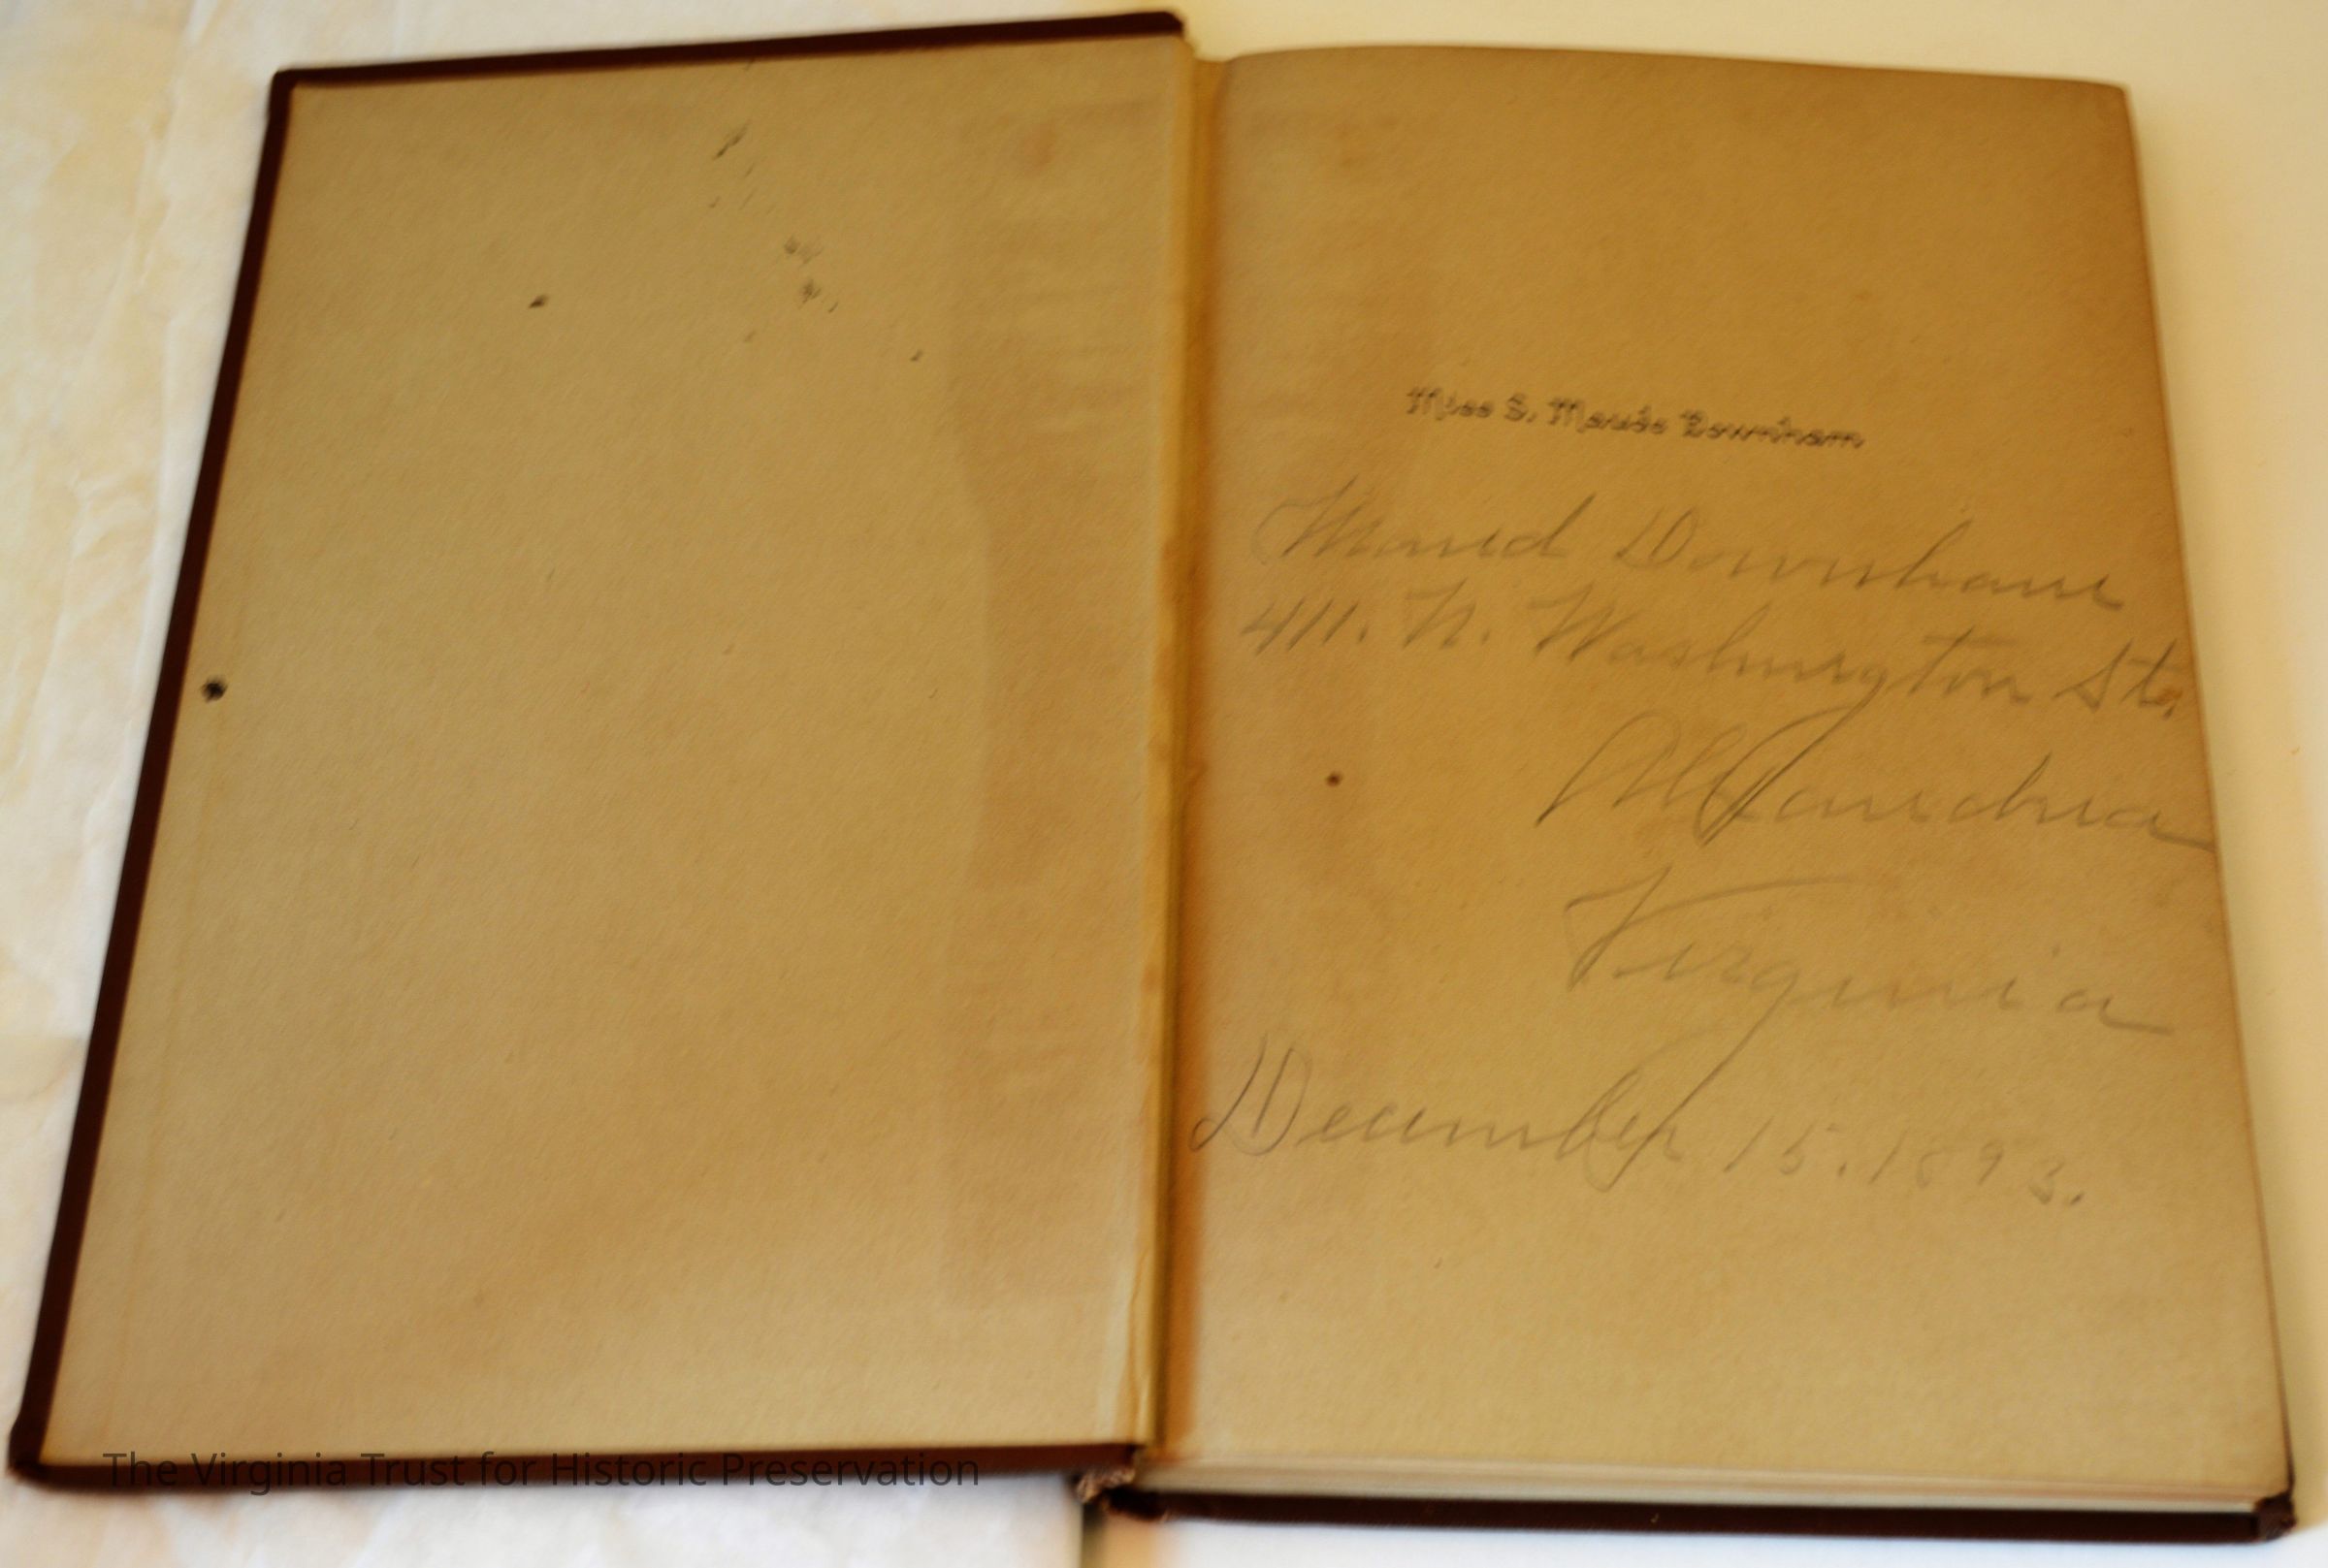 Miss S. Maude Downham
Maud Downham
411. N. Washington St.
Alexandria
Virginia
December 15. 1893.
The Virginia Trust for Historic Preservation